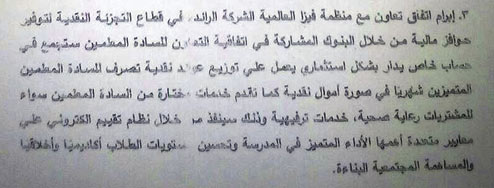 ٣. إبرام اتفاق تعاون مع منظمة فيزا العالمية الشركة الرائدة في قطاع التجزئة النقدية لتوفير
حوافز مالية من خلال البنوك المشاركة في اتفاقية التعاون للسادة المعلمين ستجمع في
حساب خاص يدار بشكل استثماري يعمل علي توزيع نقدية تصرف للسادة المعلمين
المتميزين شهريا في صورة أموال نقدية كما تقدم خدمات مختارة من السادة المعلمين سواء
للمشتريات رعاية صحية، خدمات ترفيهية وذلك سينفذ من خلال نظام تقييم إلكتروني علي
معايير متعددة أهمها الأداء المتميز في المدرسة وتحسين مستويات الطلاب أكاديميا وأخلاقيا
والمساهمة المجتمعية البناءة.